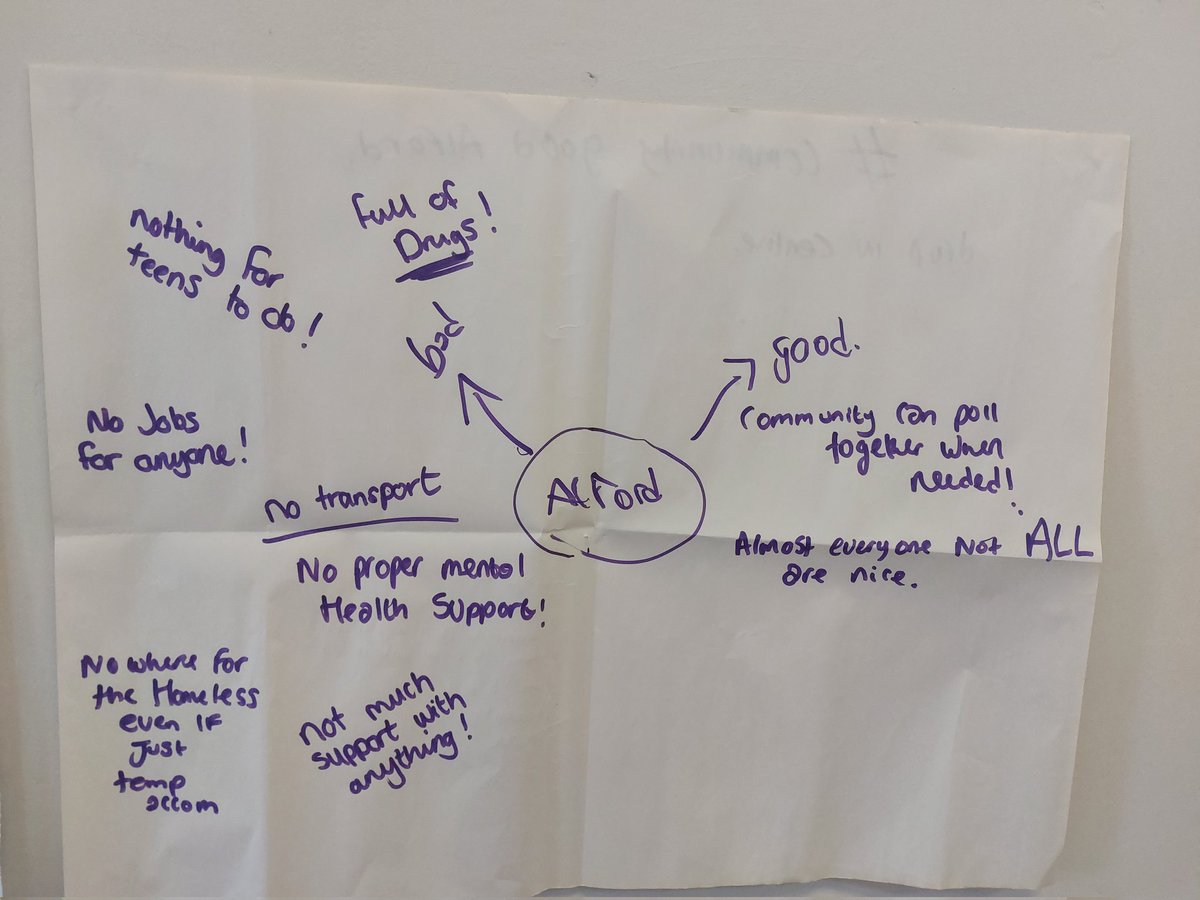 Full of
Drugs!
nothing for
teens to do!
bad
good.
No Jobs
for anyone!
Community can poll
together when
needed!
Alford
no transport
Almost everyone Not ALL
are nice.
No proper mental
Health Support!
No where for
the Homeless
even if
Just
temp
accom
not much
support with
anything!